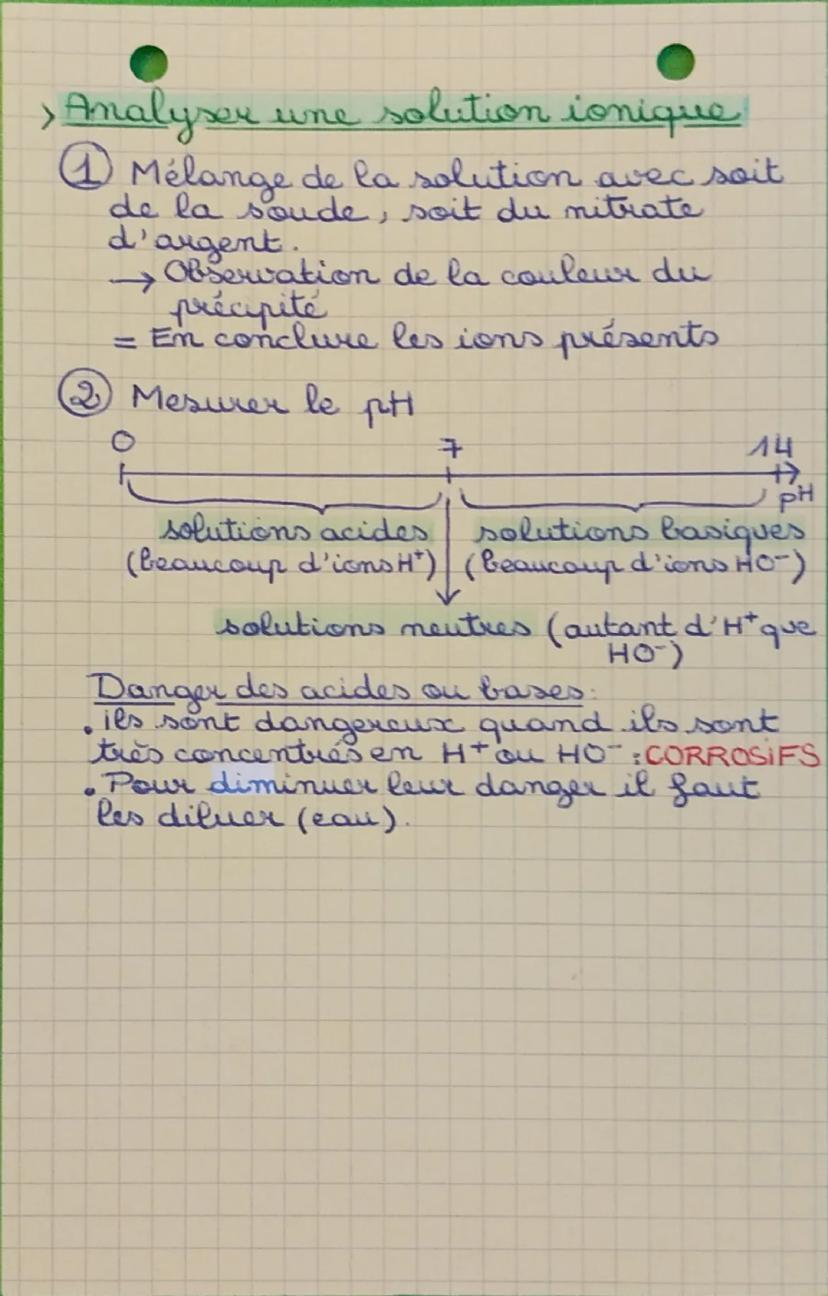 > Analyser une solution ionique
① Mélange de la solution avec soit
de la soude, soit du nitrate
d'argent.
→ Observation de la couleur du
précipité
= En conclure les ions présents
② Mesurer le pH
0 7 14
pH
solutions acides solutions basiques
(beaucoup d'ions H⁺) (beaucoup d'ions HO⁻)
solutions neutres (autant d'H⁺ que
HO⁻)
Danger des acides ou bases:
. ils sont dangereux quand ils sont
très concentrés en H⁺ ou HO⁻ : CORROSiFS
. Pour diminuer leur danger il faut
les diluer (eau).